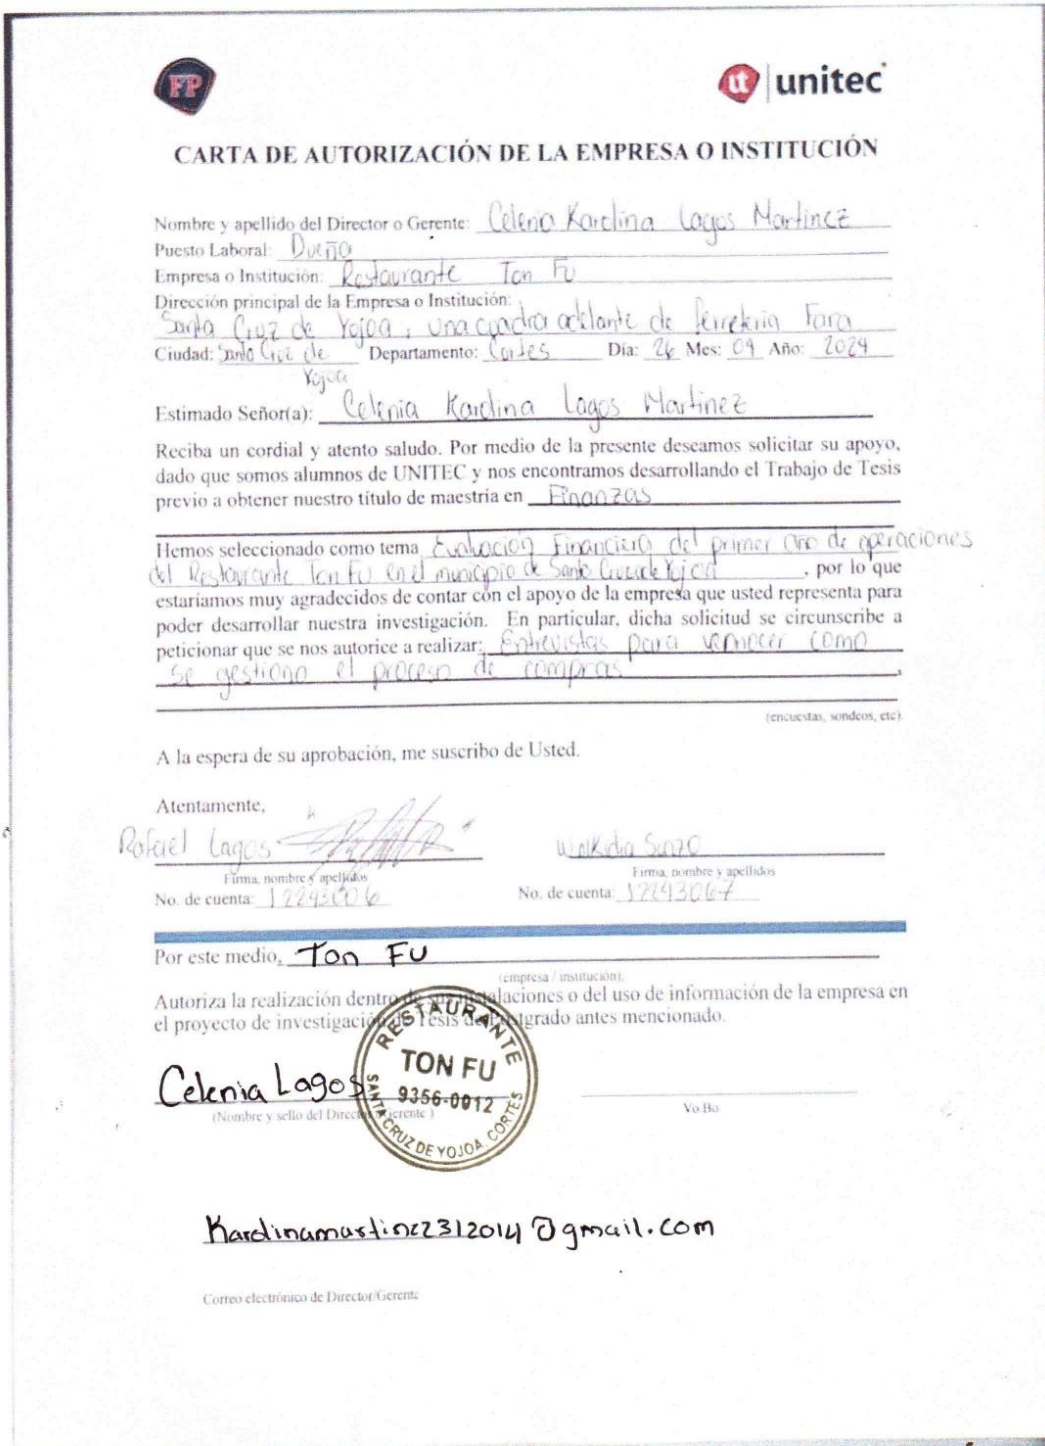 FP
ut unitec
CARTA DE AUTORIZACIÓN DE LA EMPRESA O INSTITUCIÓN
Nombre y apellido del Director o Gerente: Celenia Karolina Lagos Martinez
Puesto Laboral: Dueña
Empresa o Institución: Restaurante Ton Fu
Dirección principal de la Empresa o Institución:
Santa Cruz de Yojoa, una cuadra adelante de ferreteria Fara
Ciudad: Santa Cruz de Yojoa Departamento: Cortes Día: 26 Mes: 04 Año: 2024
Estimado Señor(a): Celenia Karolina Lagos Martinez
Reciba un cordial y atento saludo. Por medio de la presente deseamos solicitar su apoyo,
dado que somos alumnos de UNITEC y nos encontramos desarrollando el Trabajo de Tesis
previo a obtener nuestro título de maestría en Finanzas
Hemos seleccionado como tema Evaluacion Financiera del primer año de operaciones
del Restaurante Ton Fu en el municipio de Santa Cruz de Yojoa, por lo que
estaríamos muy agradecidos de contar con el apoyo de la empresa que usted representa para
poder desarrollar nuestra investigación. En particular, dicha solicitud se circunscribe a
peticionar que se nos autorice a realizar: Entrevistas para como
se gestiona el proceso de compras,
(encuestas, sondeos, etc)
A la espera de su aprobación, me suscribo de Usted.
Atentamente,
Rafael Lagos Walkidia
Firma, nombre y apellidos Firma, nombre y apellidos
No. de cuenta: 12243006 No. de cuenta: 12243067
Por este medio, Ton Fu
(empresa / institución),
Autoriza la realización dentro de sus instalaciones o del uso de información de la empresa en
el proyecto de investigación de Tesis de Postgrado antes mencionado.
Celenia Lagos
(Nombre y sello del Director/Gerente ) Vo.Bo.
RESTAURANTE
TON FU
9356-0012
SANTA CRUZ DE YOJOA, CORTES
Karolinamartinez312014@gmail.com
Correo electrónico de Director/Gerente